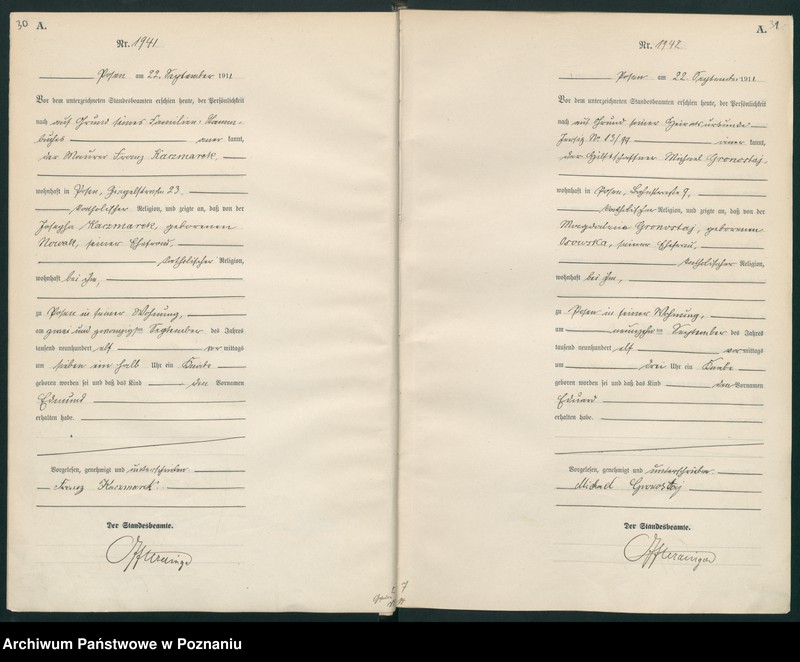 30
A.
Nr. 1941
Posen am 22. September 1911
Vor dem unterzeichneten Standesbeamten erschien heute, der Persönlichkeit
nach auf Grund seines Familien-Stamm-
buches aner kannt,
der Maurer Franz Kaczmarek
wohnhaft in Posen, 23
katholischer Religion, und zeigte an, daß von der
Josepha Kaczmarek, geborenen
Nowak, seiner Ehefrau,
katholischer Religion,
wohnhaft bei ihm,
zu Posen in seiner Wohnung,
am zwei und zwanzigsten September des Jahres
tausend neunhundert elf vor mittags
um sieben ein halb Uhr ein Knabe
geboren worden sei und daß das Kind den Vornamen
Edmund
erhalten habe.
Vorgelesen, genehmigt und unterschrieben
Franz Kaczmarek
Der Standesbeamte.
31
A.
Nr. 1942
Posen am 22. September 1911
Vor dem unterzeichneten Standesbeamten erschien heute, der Persönlichkeit
nach auf Grund seiner Heiratsurkunde
Jersitz No 13/99 aner kannt,
der Hilfsschaffner Michael Gronostaj
wohnhaft in Posen, 9,
katholischer Religion, und zeigte an, daß von der
Magdalena Gronostaj, geborenen
Osowska, seiner Ehefrau,
katholischer Religion,
wohnhaft bei ihm,
zu Posen in seiner Wohnung,
am neunzehnten September des Jahres
tausend neunhundert elf vor mittags
um drei Uhr ein Knabe
geboren worden sei und daß das Kind den Vornamen
Eduard
erhalten habe.
Vorgelesen, genehmigt und unterschrieben
Michael Gronostaj
Der Standesbeamte.
Archiwum Państwowe w Poznaniu